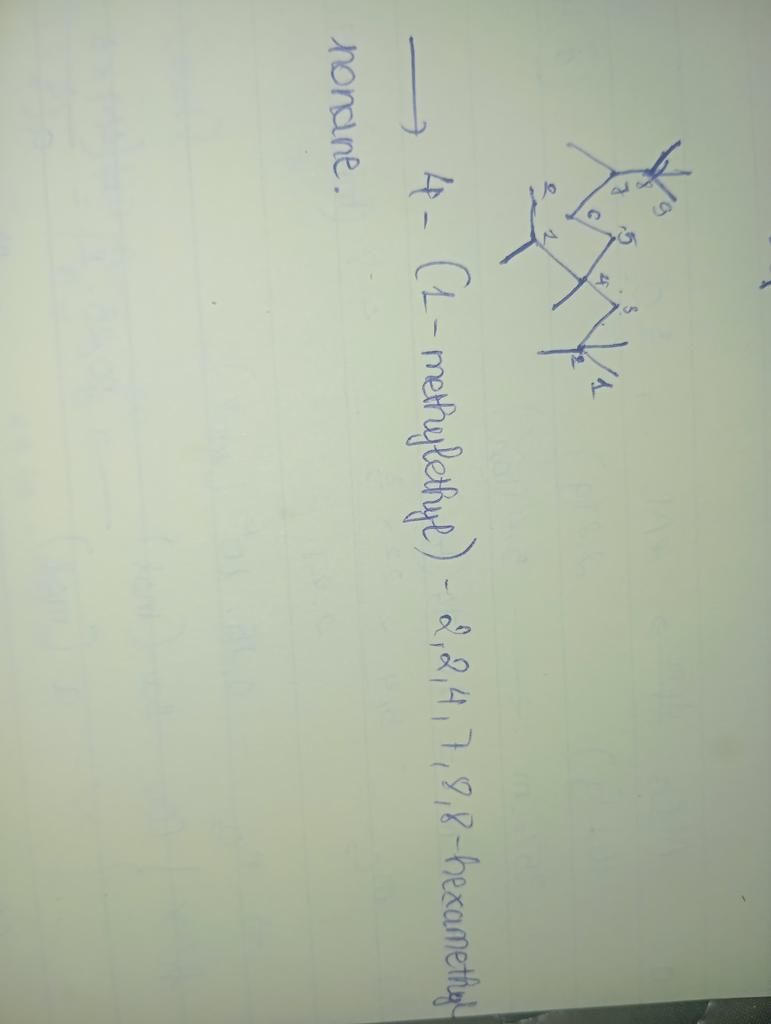 9
8
7
6
5
4
3
2
1
1
2
→ 4-(1-methylethyl)-2,2,4,7,8,8-hexamethyl
nonane.